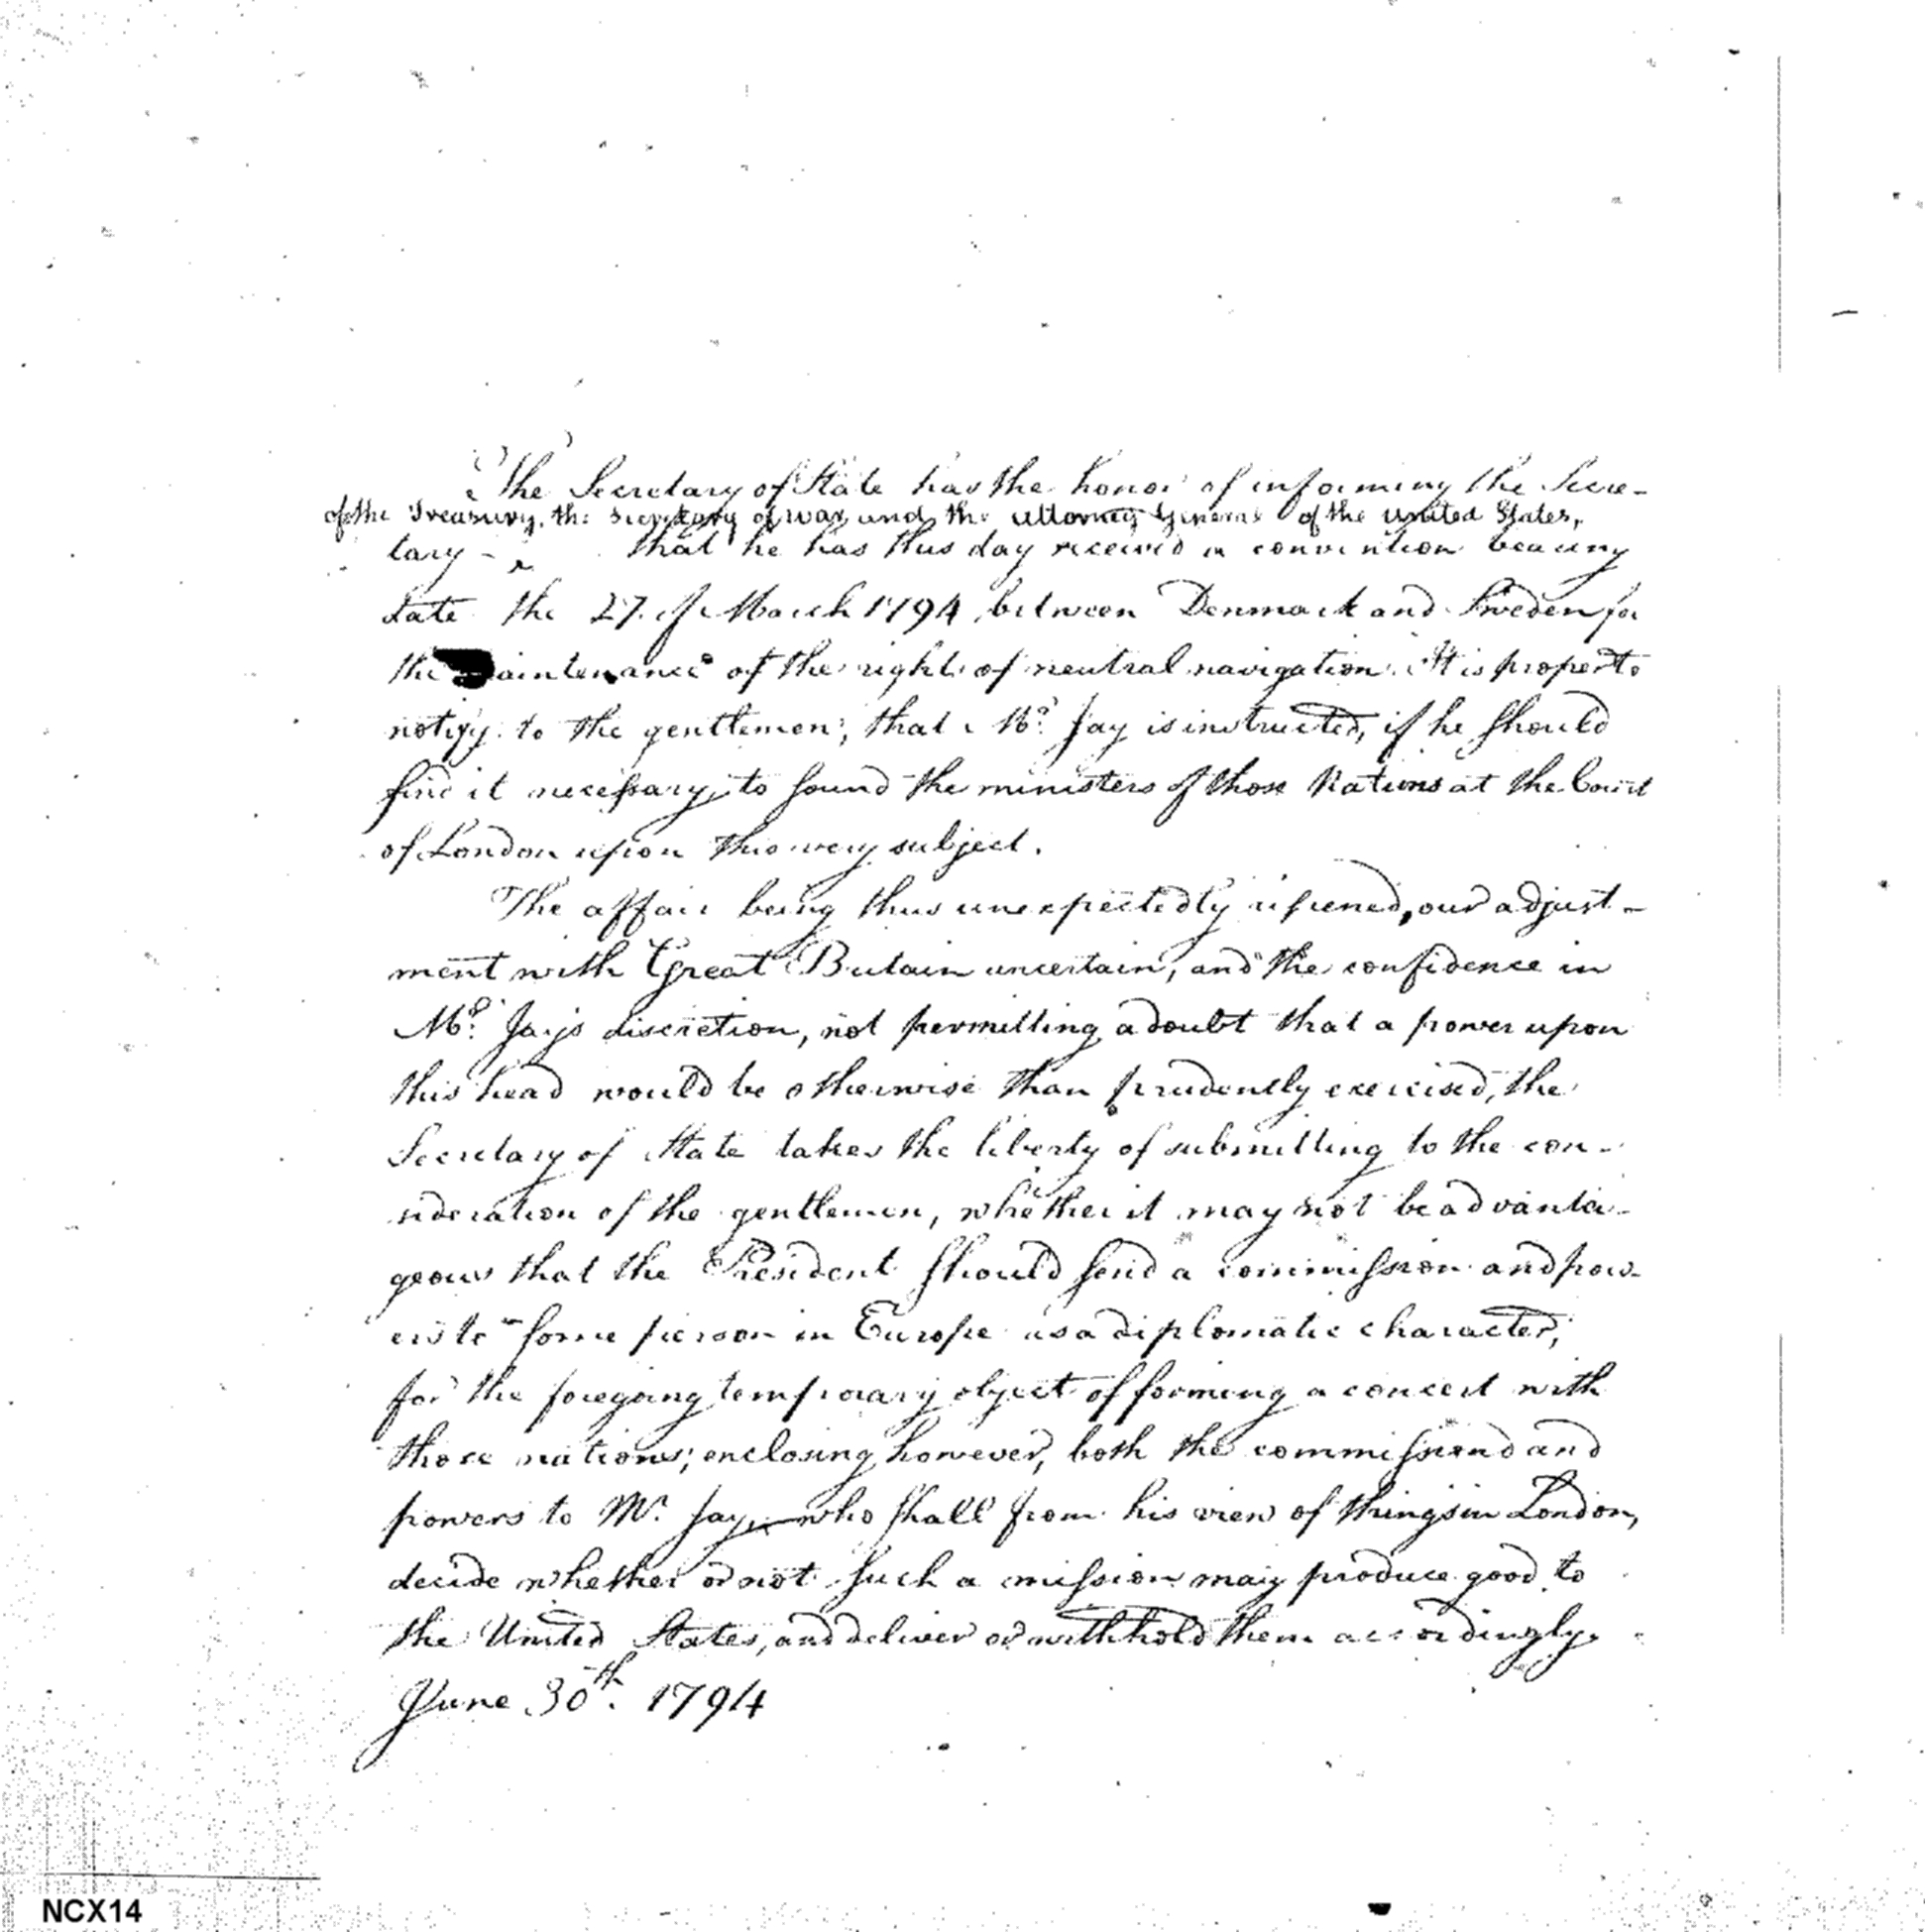 The Secretary of State has the honor of informing the Secre-
of the Treasury, the Secretary of war, and the Attorney General of the United States,
tary - ^ that he has this day received a convention bearing
date the 27. of March 1794, between Denmark and Sweden for
the maintenance of the rights of neutral navigation. It is proper to
notify to the gentlemen, that Mr. Jay is instructed, if he should
find it necessary, to sound the ministers of those Nations at the Court
of London upon this very subject.
The affair being thus unexpectedly ripened, our adjust-
ment with Great Britain uncertain, and the confidence in
Mr. Jay's discretion, not permitting a doubt that a power upon
this head would be otherwise than prudently exercised, the
Secretary of State takes the liberty of submitting to the con-
sideration of the gentlemen, whether it may not be advanta-
geous that the President should send a commission and pow-
ers to some person in Europe as a diplomatic character,
for the foregoing temporary object of forming a concert with
those nations; enclosing however, both the commission and
powers to Mr. Jay, who shall from his view of things in London,
decide whether or not such a mission may produce good to
the United States, and deliver or withhold them accordingly.
June 30th. 1794
NCX14